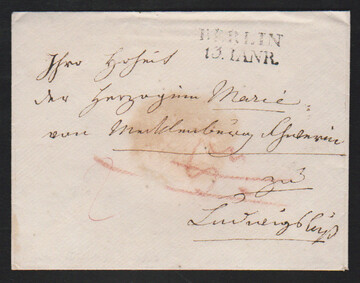 BERLIN
13. IANR.
Ihro Hoheit
der Herzoginn Marie
von Mecklenburg Schwerin
zu
Ludwigslust